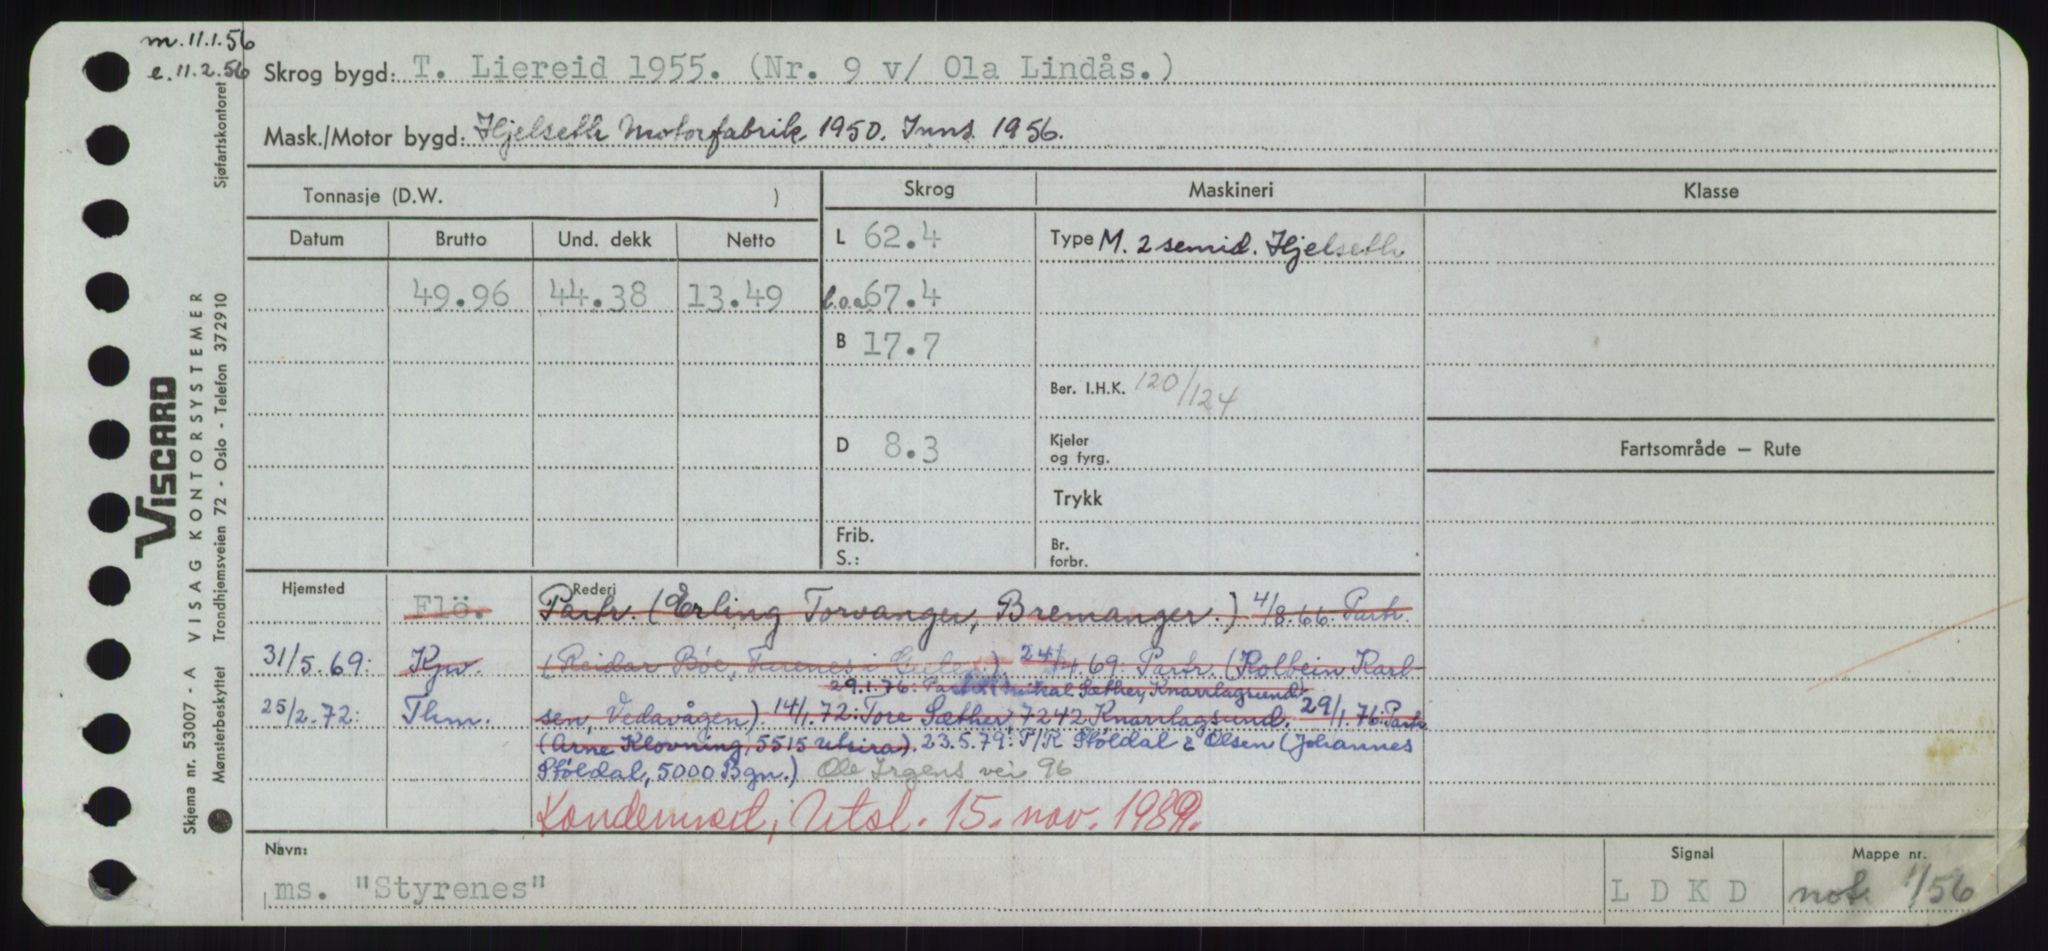 m. 11.1.56
e. 11.2.56
Skrog bygd: T. Liereid 1955. (Nr. 9 v/ Ola Lindås.)
Mask./Motor bygd: Hjelseth Motorfabrik 1950. Inns. 1956.
Tonnasje (D.W. )
Skrog
Maskineri
Klasse
Datum Brutto Und. dekk Netto
L 62.4
Type M. 2 semid. Hjelseth
49.96 44.38 13.49
l.o.a 67.4
B 17.7
Ber. I.H.K. 120/124
D 8.3
Kjeler
og fyrg.
Fartsområde – Rute
Trykk
Frib.
S.:
Br.
forbr.
Hjemsted
Rederi
Flö. Partr. (Erling Torvanger, Bremanger.) 4/8.66. Partr.
31/5.69: Kjw. (Reidar Böe, i ) 24/4 69: Partr. (Kolbein Karl-
29.1.76: Sæther, Knarrlagsund)
25/2.72: Thm. sen, Vedavågen). 14/1.72: Tore Sæther, 7242 Knarrlagsund. 29/1.76: Partr
(Arne Klovning, 5515 Utsira). 23.5.79: P/R Stöldal & Olsen (Johannes
Stöldal, 5000 Bgn.) Ole Irgens vei 96
Kondemned, Utsl. 15. nov. 1989.
Navn:
ms. "Styrenes"
Signal
L D K D
Mappe nr.
not. 1/56
Sjøfartskontoret
VISCARD
VISAG KONTORSYSTEMER
Skjema nr. 53007 - A
Mønsterbeskyttet Trondhjemsveien 72 - Oslo - Telefon 372910